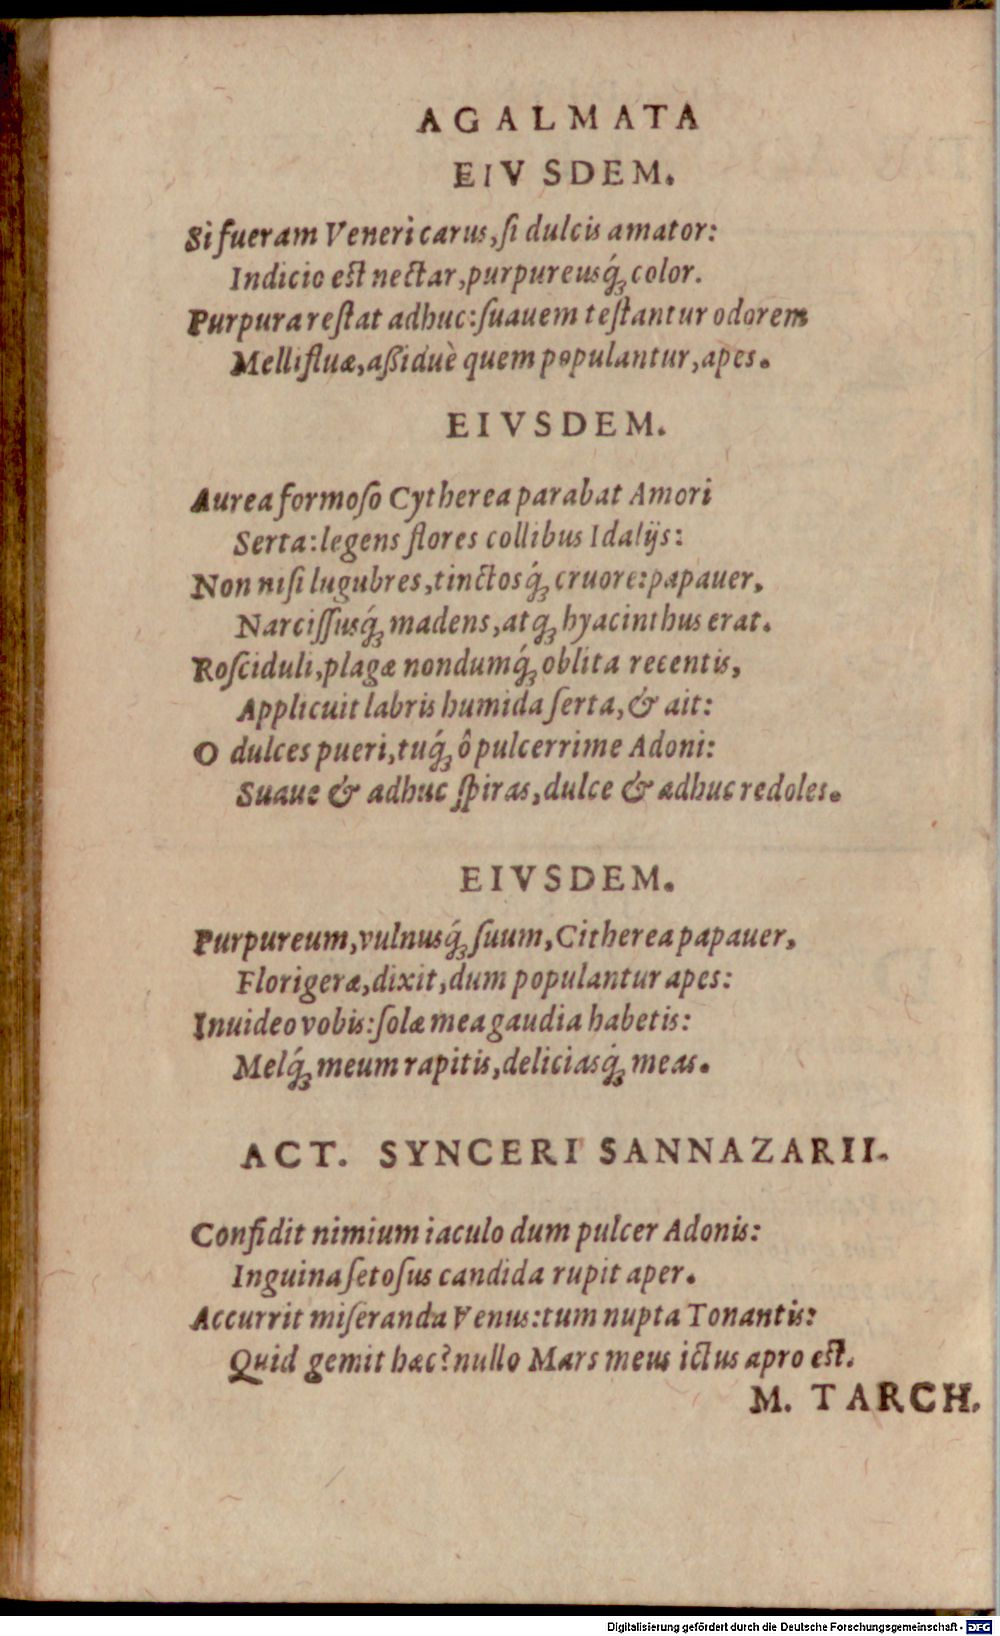 AGALMATA
EIVSDEM.
Si fueram Veneri carus, ſi dulcis amator:
Indicio est nectar, purpureusq́; color.
Purpura reſtat adhuc: ſuauem teſtantur odorem
Mellifluæ, aßiduè quem populantur, apes.
EIVSDEM.
Aurea formoſo Cytherea parabat Amori
Serta: legens flores collibus Idalijs:
Non niſi lugubres, tinctosq́; cruore: papauer,
Narciſſusq́; madens, atq; hyacinthus erat.
Roſciduli, plagæ nondumq́; oblita recentis,
Applicuit labris humida ſerta, & ait:
O dulces pueri, tuq́; ô pulcerrime Adoni:
Suaue & adhuc ſpiras, dulce & adhuc redoles.
EIVSDEM.
Purpureum, vulnusq́; ſuum, Citherea papauer,
Florigeræ, dixit, dum populantur apes:
Inuideo vobis: ſolæ mea gaudia habetis:
Melq́; meum rapitis, deliciasq́; meas.
ACT. SYNCERI SANNAZARII.
Confidit nimium iaculo dum pulcer Adonis:
Inguina ſetoſus candida rupit aper.
Accurrit miſeranda Venus: tum nupta Tonantis:
Quid gemit hæc? nullo Mars meus ictus apro est.
M. TARCH.
Digitalisierung gefördert durch die Deutsche Forschungsgemeinschaft - DFG